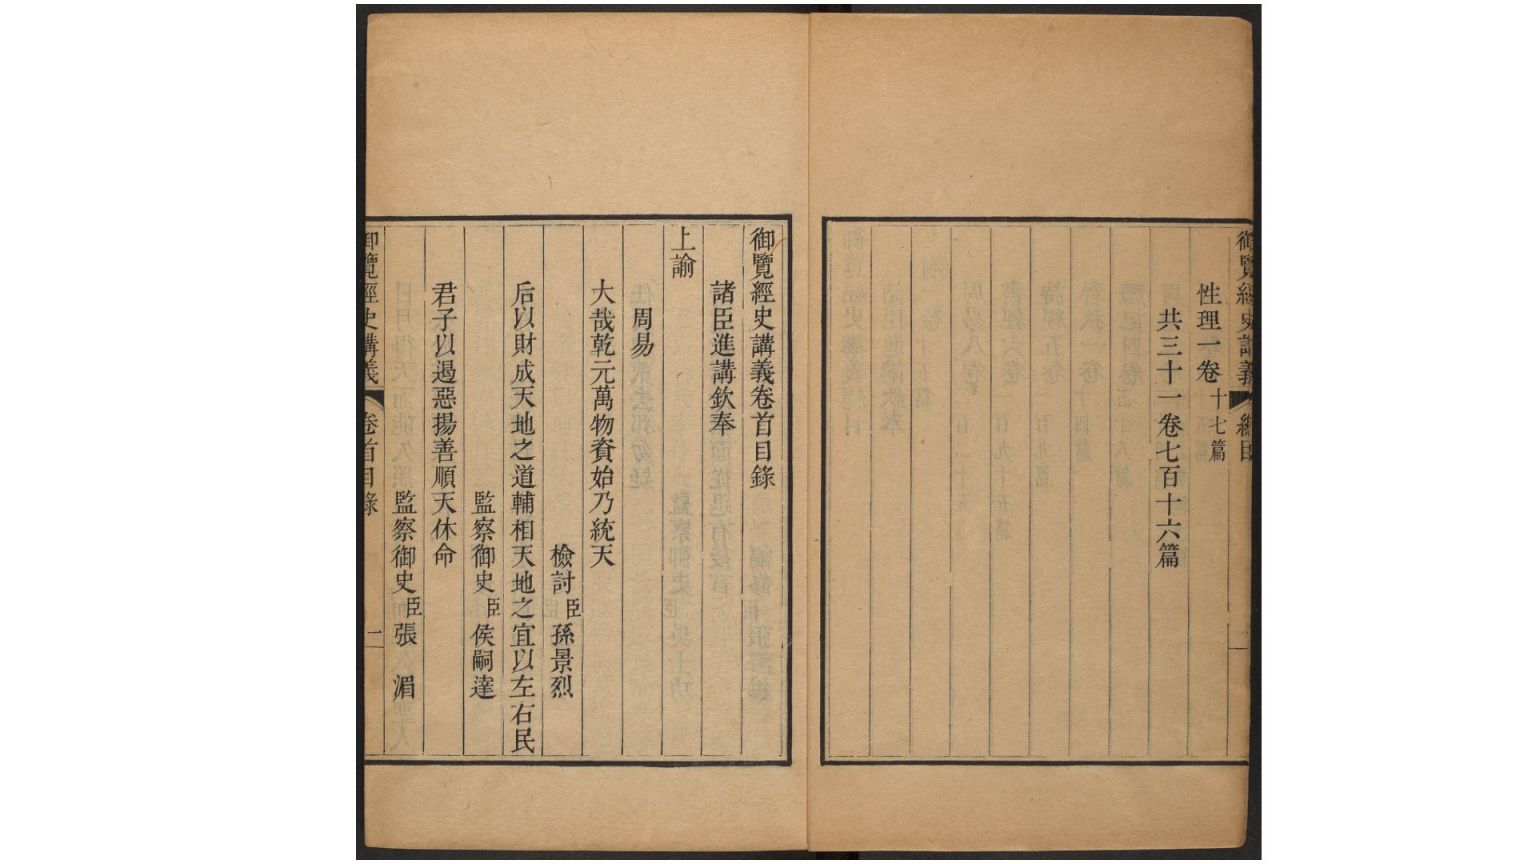 御覽經史講義 總目
性理一卷十七篇
共三十一卷七百十六篇
御覽經史講義卷首目錄
諸臣進講欽奉
上諭
周易
大哉乾元萬物資始乃統天
檢討臣孫景烈
后以財成天地之道輔相天地之宜以左右民
監察御史臣侯嗣達
君子以遏惡揚善順天休命
監察御史臣張湄
御覽經史講義 卷首目錄 一